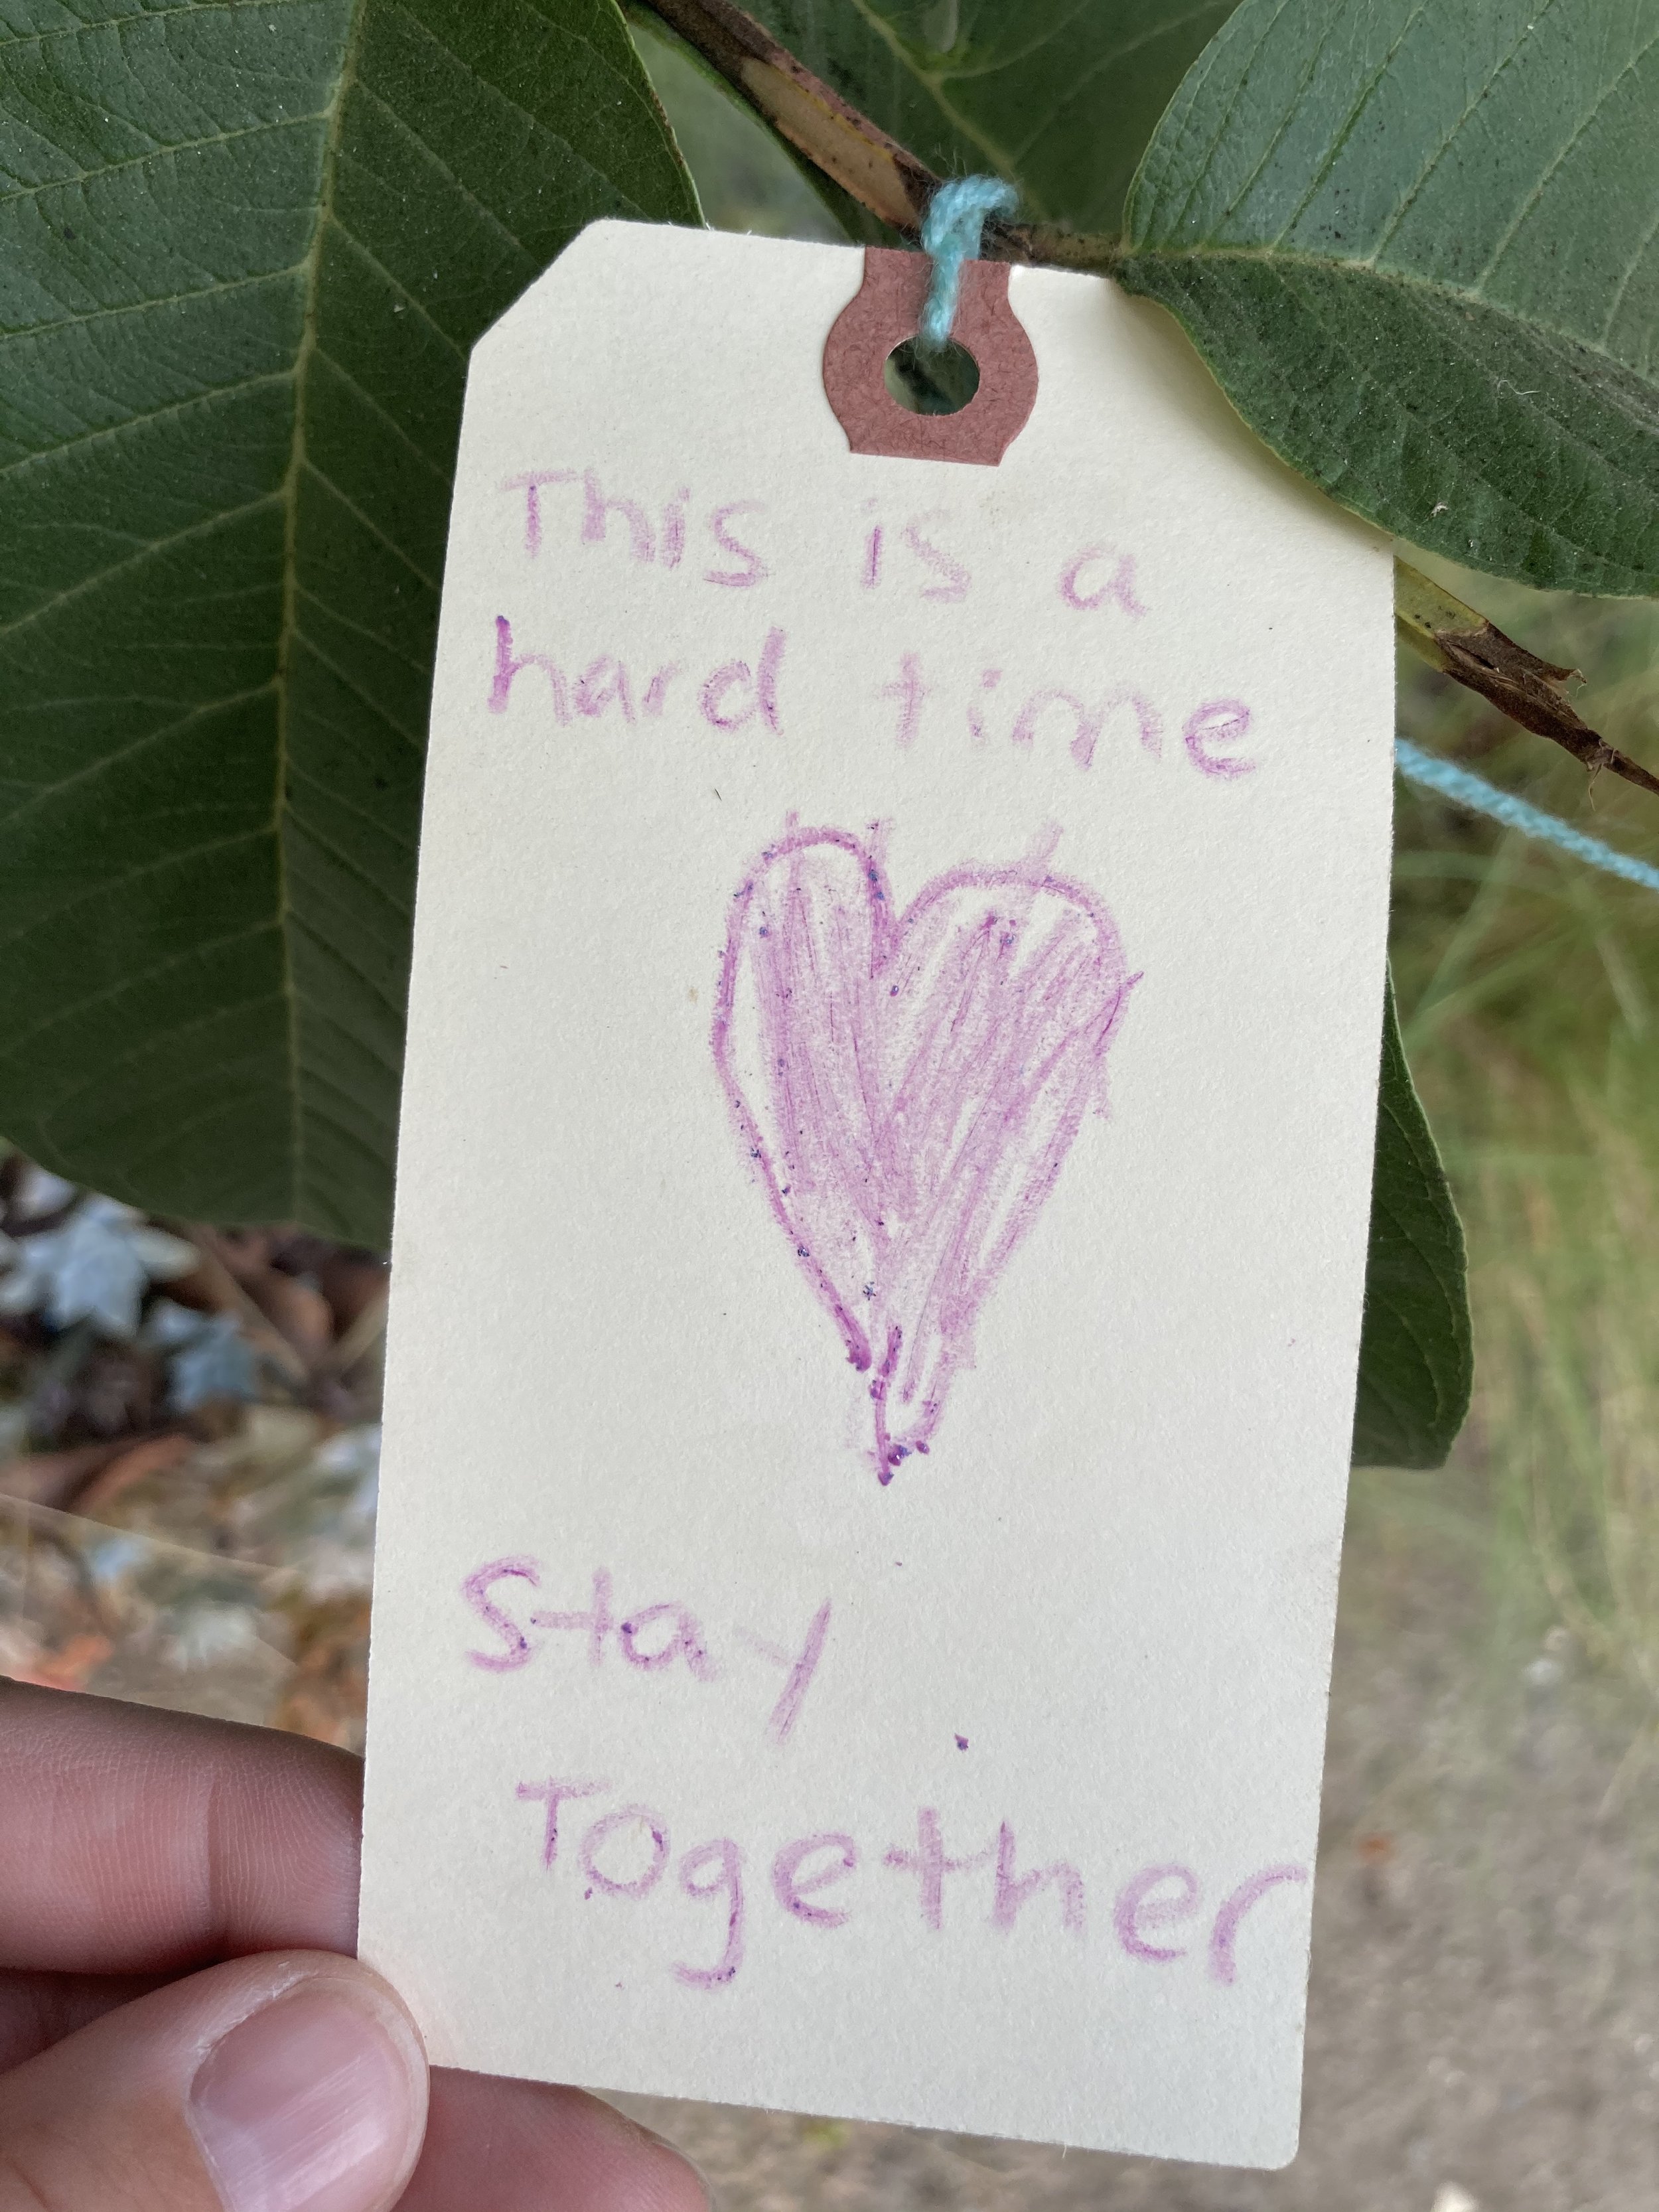 This is a
hard time
Stay
Together